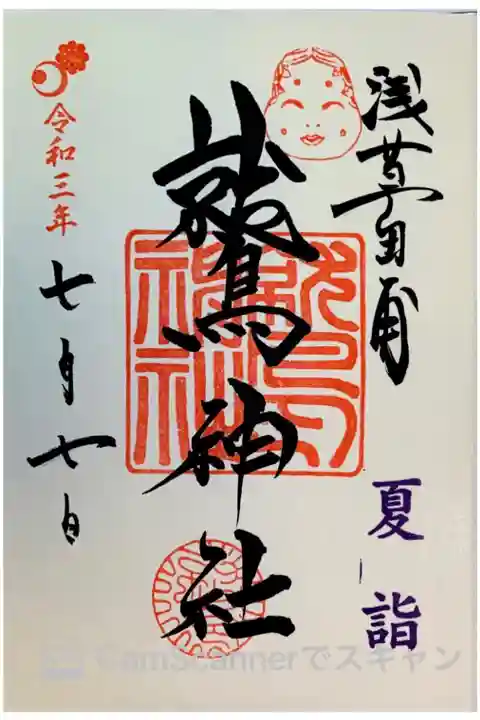 浅草田甫
夏詣
鷲神社
令和三年
七月七日
CamScannerでスキャン